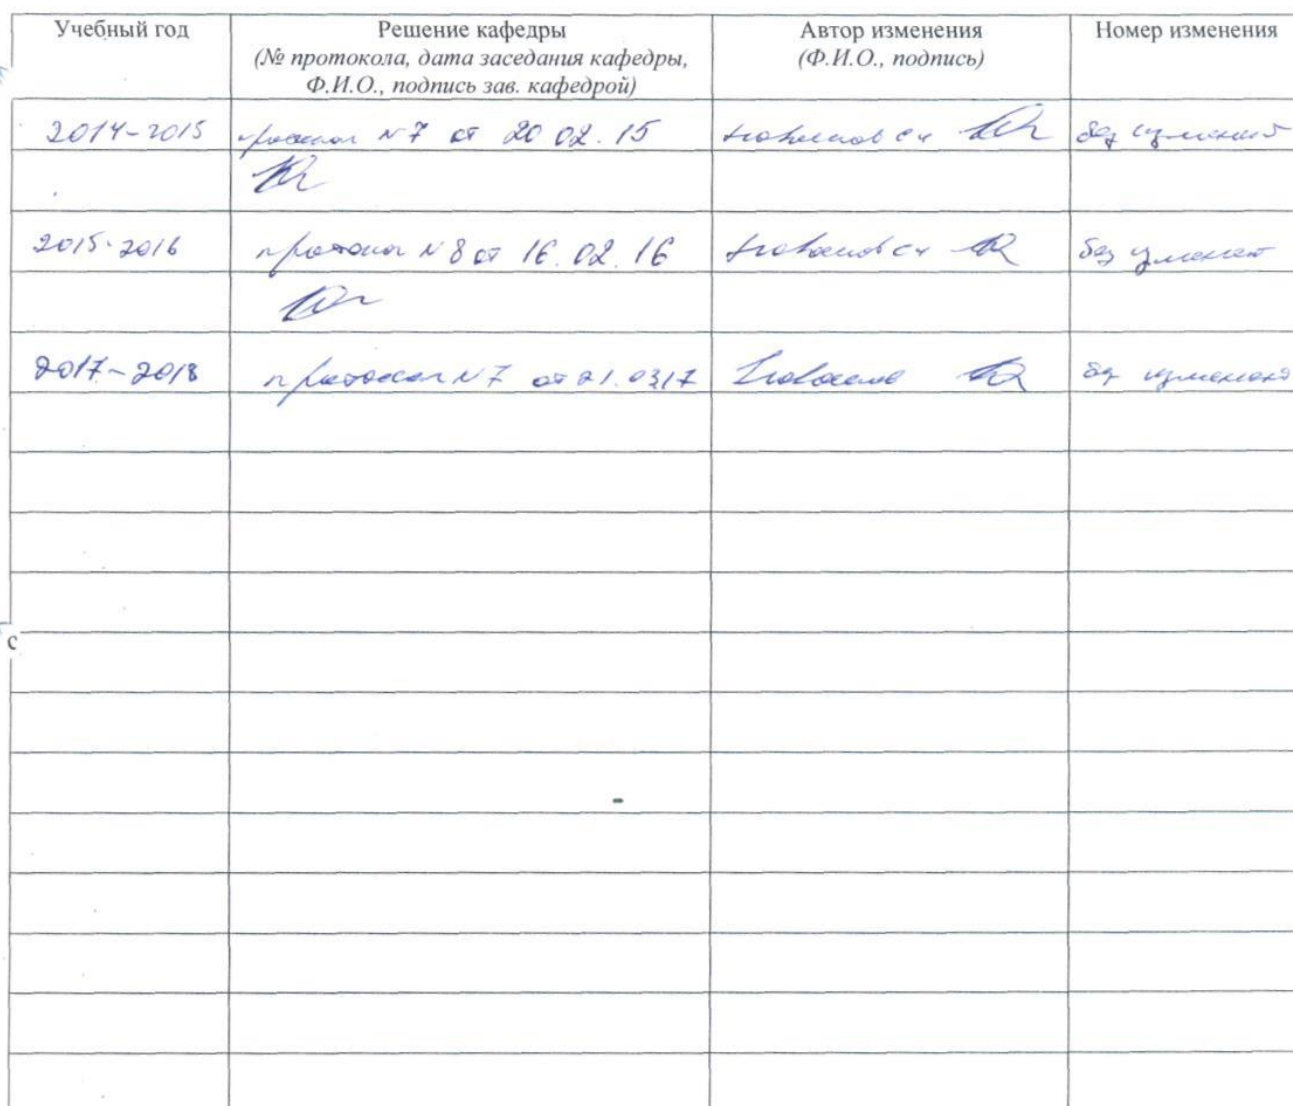 Учебный год
Решение кафедры
(№ протокола, дата заседания кафедры,
Ф.И.О., подпись зав. кафедрой)
Автор изменения
(Ф.И.О., подпись)
Номер изменения
2014-2015 протокол N7 от 20 02.15 без изменений
2015-2016 протокол N8 от 16.02.16 без изменений
2017-2018 протокол N7 от 21.0317 без изменений
с